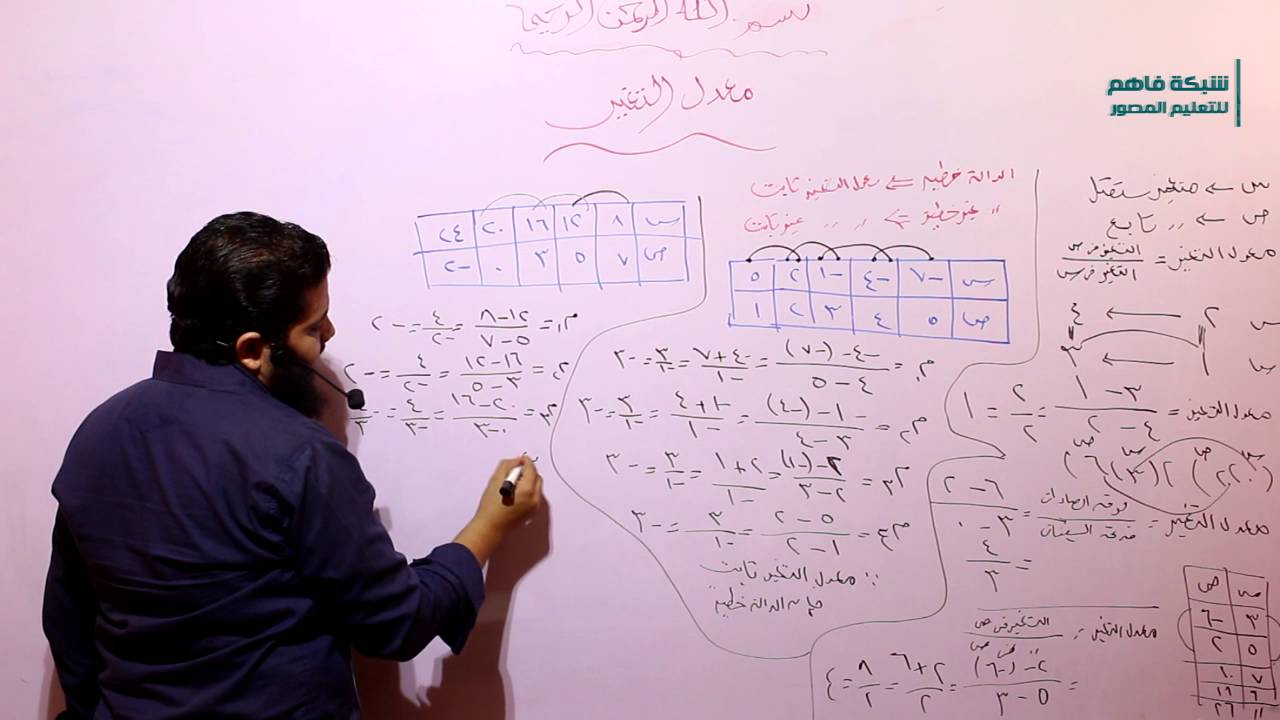 بسم الله الرحمن الرحيم
معدل التغير
شبكة فاهم
للتعليم المصور
س ← متغير مستقل
ص ← ,, تابع
معدل التغير = التغير في ص / التغير في س
س ٢ ← ٤
١ ← ٣
معدل التغير = ٣ − ١ / ٤ − ٢ = ٢ / ٢ = ١
معدل التغير = فرق الصادات / فرق السينات = ٦ − ٢ / ٣ − ٠
= ٤ / ٣
س | ص
٣ | −٦
٥ | ٢
٧ | ١٠
معدل التغير = التغير في ص
= ٢ − (−٦) / ٥ − ٣ = ٢ + ٦ / ٢ = ٨ / ٢ = ٤
الدالة خطية ⇐ معدل التغير ثابت
,, غير خطية ⇐ ,, ,, غير ثابت
س | −٧ | −٤ | −١ | ٢ | ٥
ص | ٥ | ٤ | ٣ | ٢ | ١
م١ = −٤ − (−٧) / ٤ − ٥ = −٤ + ٧ / −١ = ٣ / −١ = −٣
م٢ = −١ − (−٤) / ٣ − ٤ = −١ + ٤ / −١ = ٣ / −١ = −٣
م٣ = ٢ − (−١) / ٢ − ٣ = ٢ + ١ / −١ = ٣ / −١ = −٣
م٤ = ٥ − ٢ / ١ − ٢ = ٣ / −١ = −٣
∵ معدل التغير ثابت
الدالة خطية
س | ٨ | ١٢ | ١٦ | ٢٠ | ٢٤
ص | ٧ | ٥ | ٣ | ٠ | −٢
م١ = ١٢ − ٨ / ٥ − ٧ = ٤ / −٢ = −٢
م٢ = ١٦ − ١٢ / ٣ − ٥ = ٤ / −٢ = −٢
م٣ = ٢٠ − ١٦ / ٠ − ٣ = ٤ / −٣ =